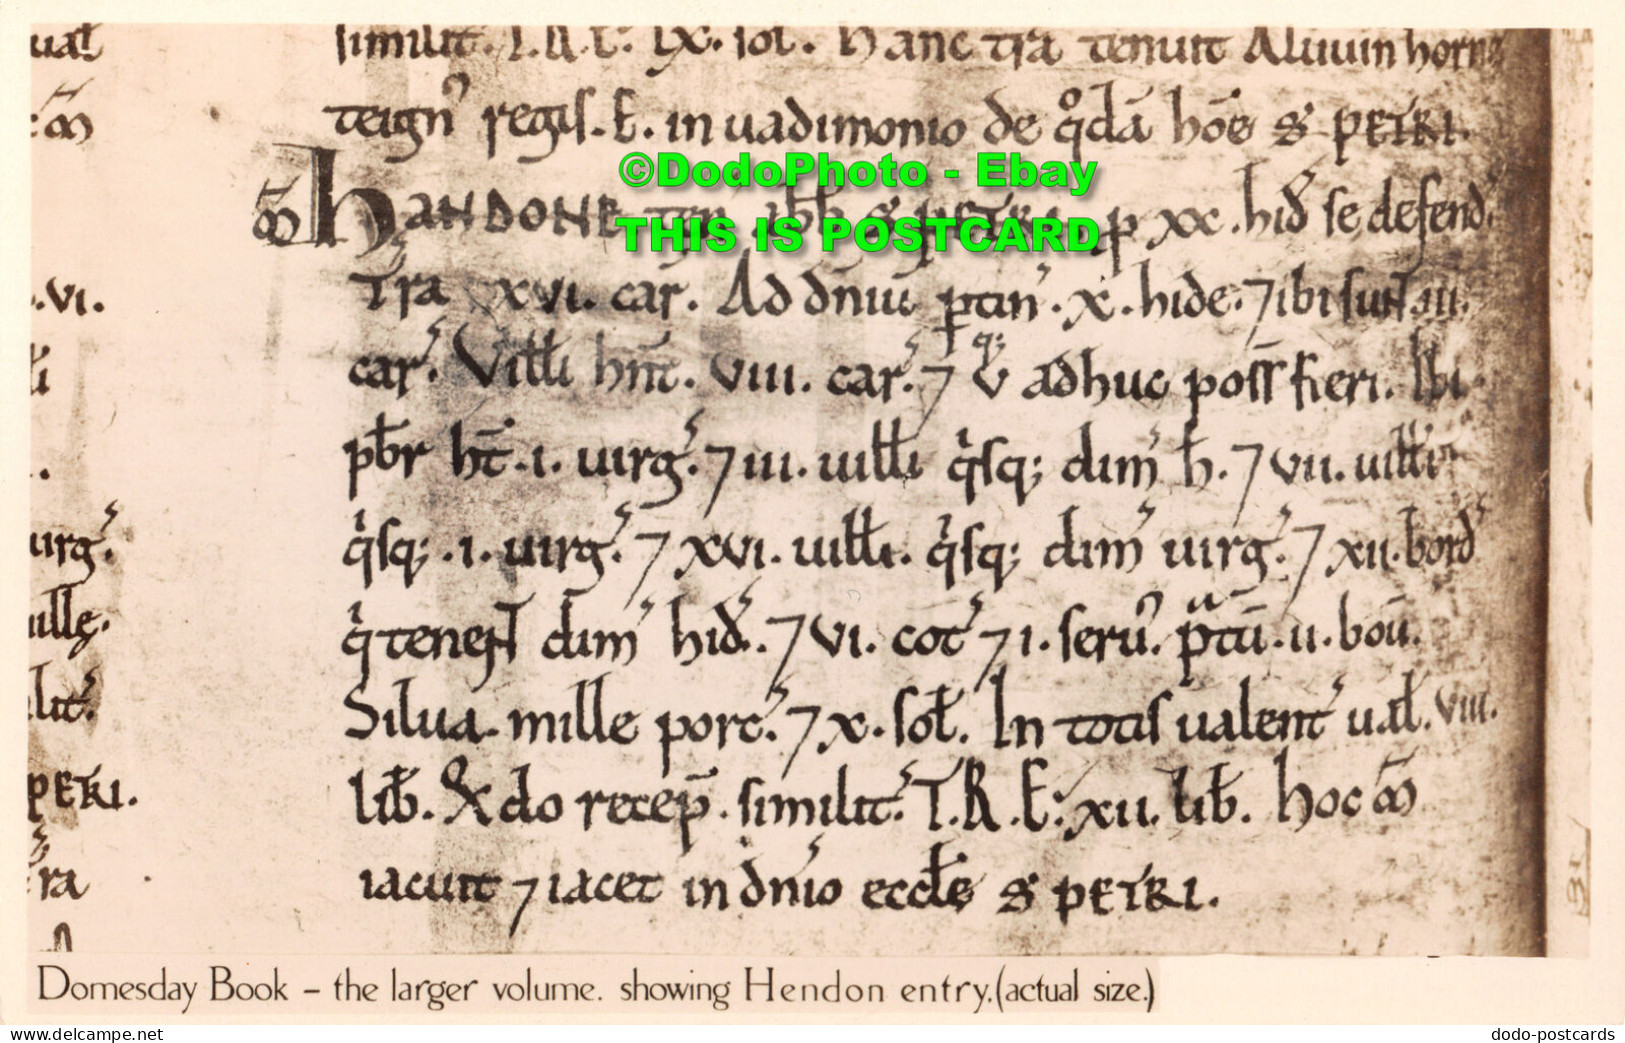 ual
: m̄
.VI.
lli
.
uirg'.
uille.
lit'.
PETRI.
t̄ra
similit'. T.R.E: lx. sol. Hanc t̄ra tenuit Aluuin horne
teign' regis. E. in uadimonio de qdā hōe S PETRI.
m̄ HANDONE ten abb S PETRI. p xx. hid' se defend'.
T'ra xvi. car'. Ad dn̄iū ptin'. x. hide. ⁊ ibi sunt .iii.
car'. Villi hn̄t. viii. car'. ⁊ v q; adhuc poss fieri. Ibi
pbr ht̄ .i. uirg'. ⁊ iii. uilli q̇sq; dim' h. ⁊ vii. uilli
q̇sq; .i. uirg'. ⁊ xvi. uilli. q̇sq; dim' uirg'. ⁊ xii. bord'
q̇ tenent dim' hid'. ⁊ vi. cot' ⁊ i. seru'. ptū. ii. boū.
Silua. mille porc'. ⁊ x. sol. In totis ualent' ual. viii.
lib. Qdo recep̄. similit'. T.R.E: xii. lib. hoc m̄
iacuit ⁊ iacet in dn̄io eccle S PETRI.
©DodoPhoto - Ebay
THIS IS POSTCARD
Domesday Book – the larger volume. showing Hendon entry.(actual size.)
www.delcampe.net
dodo-postcards